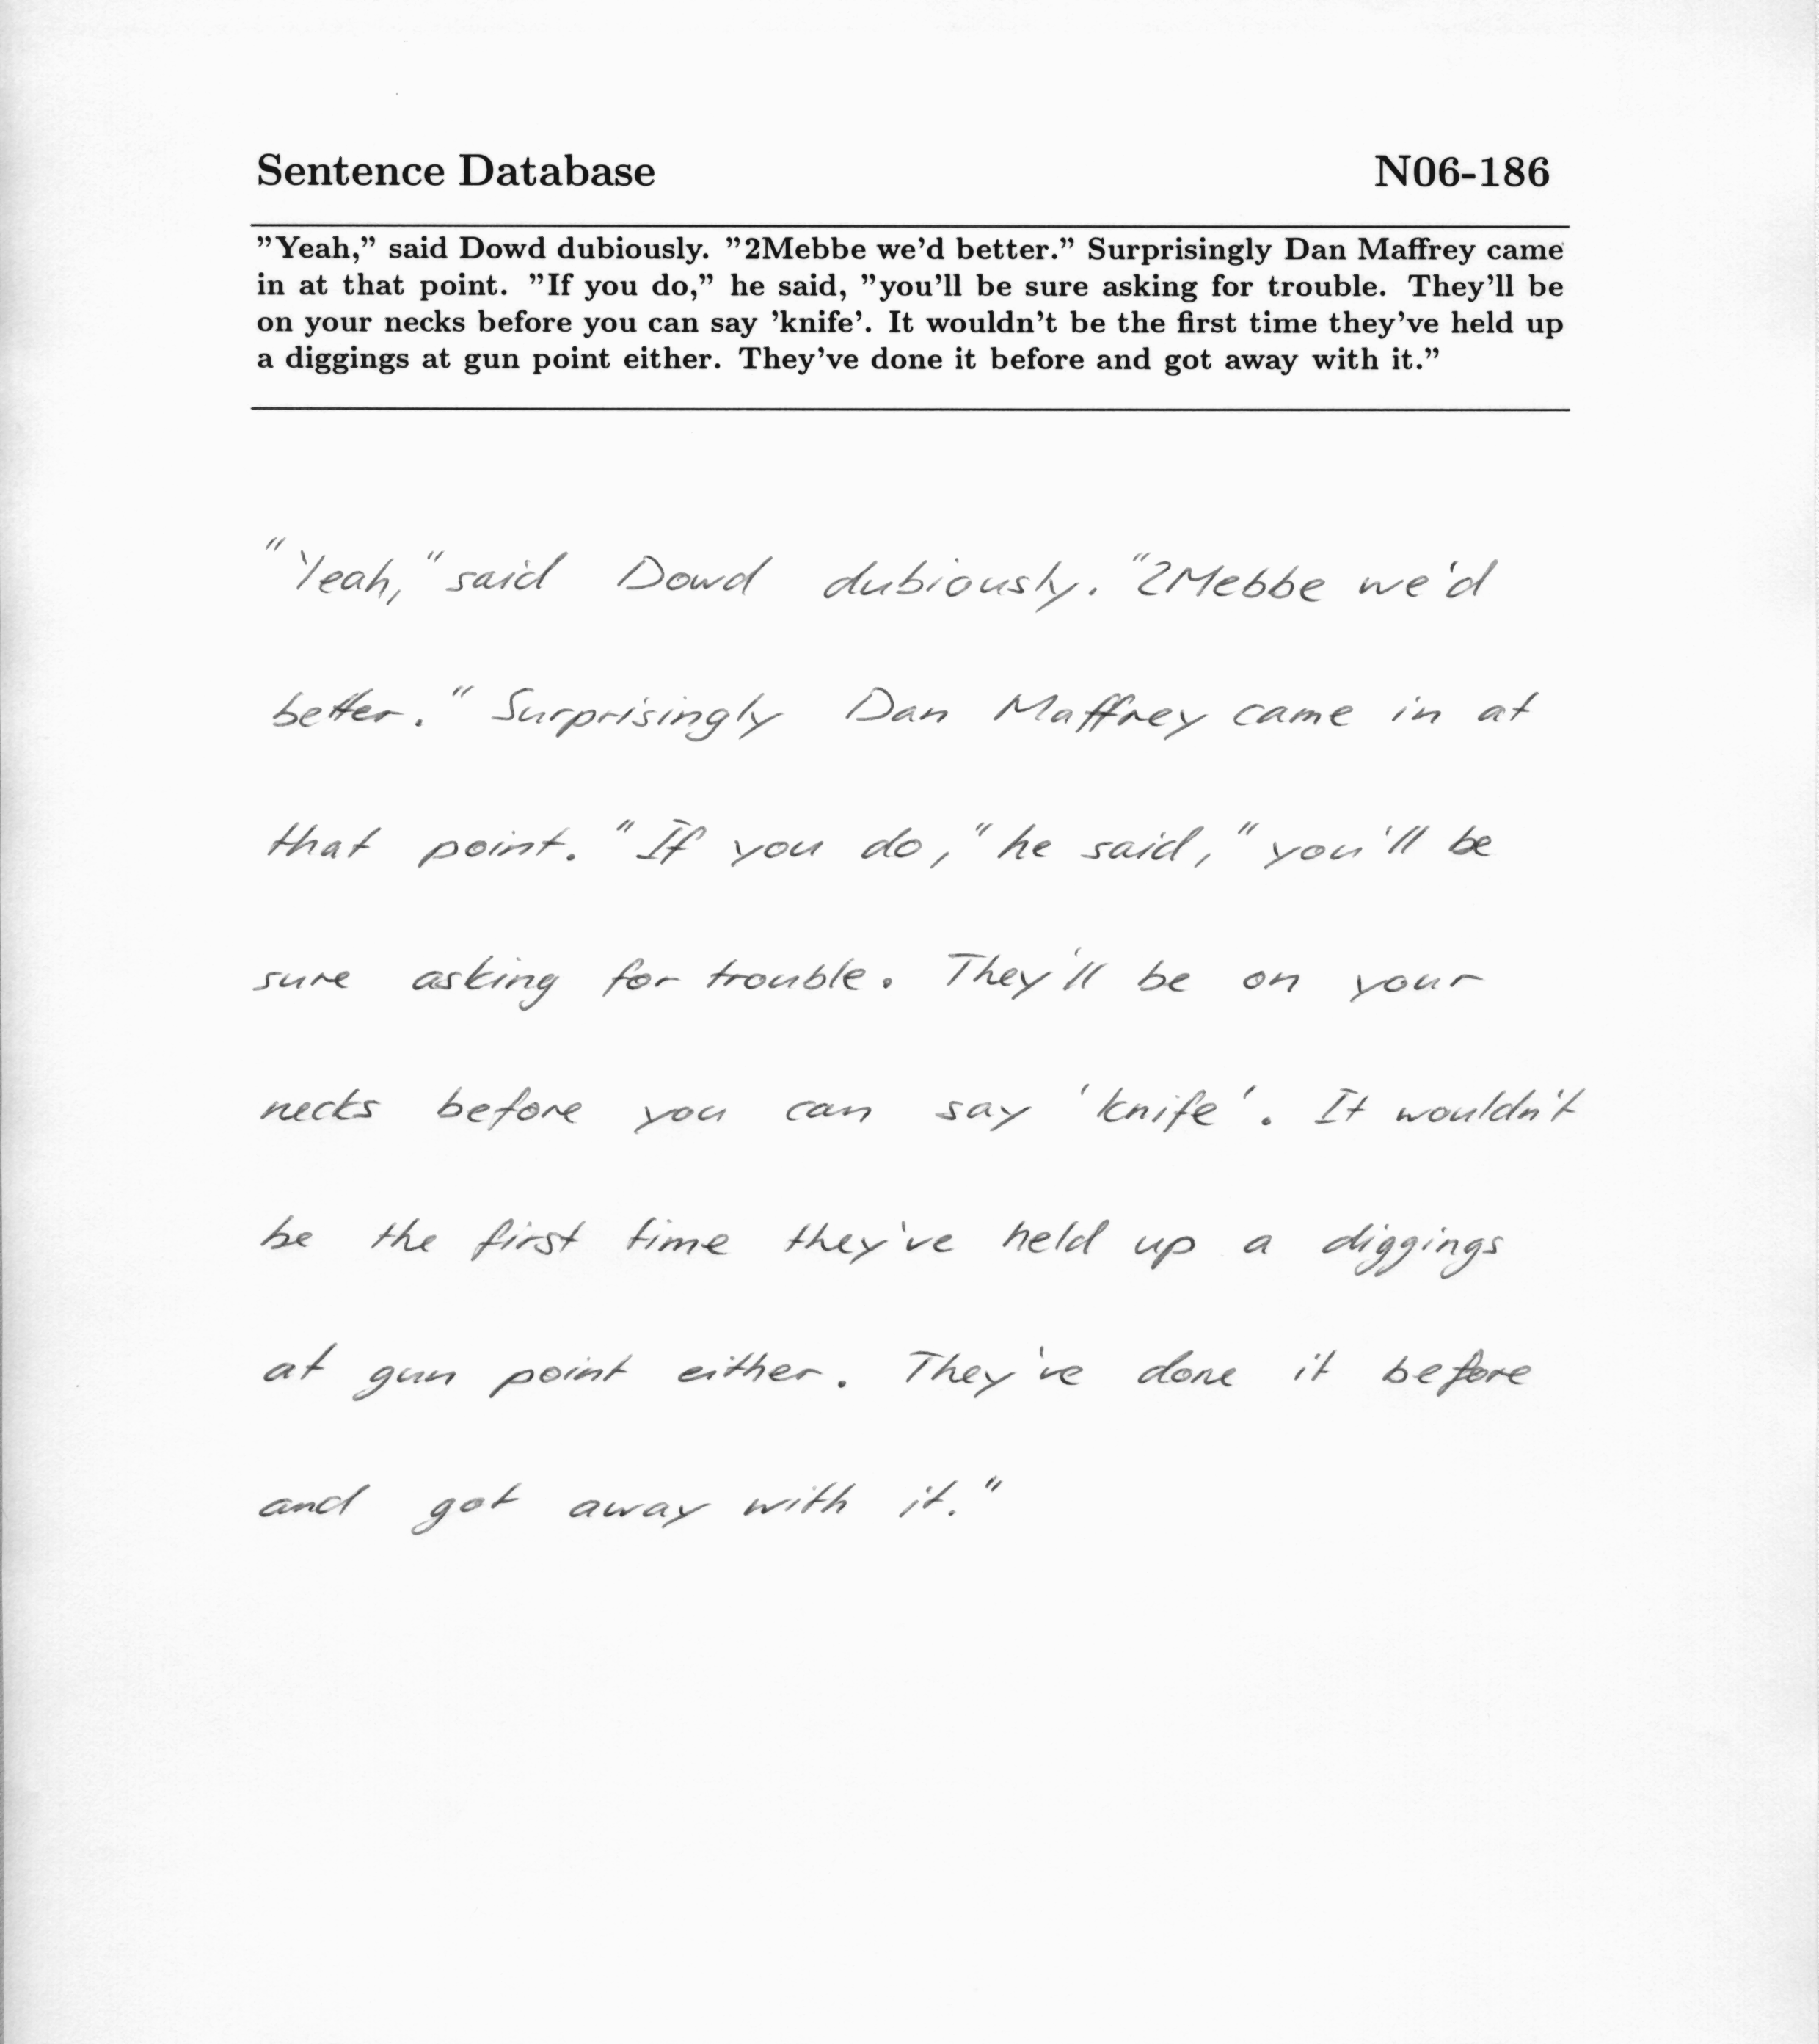 Sentence Database N06-186
"Yeah," said Dowd dubiously. "2Mebbe we'd better." Surprisingly Dan Maffrey came
in at that point. "If you do," he said, "you'll be sure asking for trouble. They'll be
on your necks before you can say 'knife'. It wouldn't be the first time they've held up
a diggings at gun point either. They've done it before and got away with it."
"Yeah," said Dowd dubiously. "2Mebbe we'd
better." Surprisingly Dan Maffrey came in at
that point. "If you do," he said, "you'll be
sure asking for trouble. They'll be on your
necks before you can say 'knife'. It wouldn't
be the first time they've held up a diggings
at gun point either. They've done it before
and got away with it."